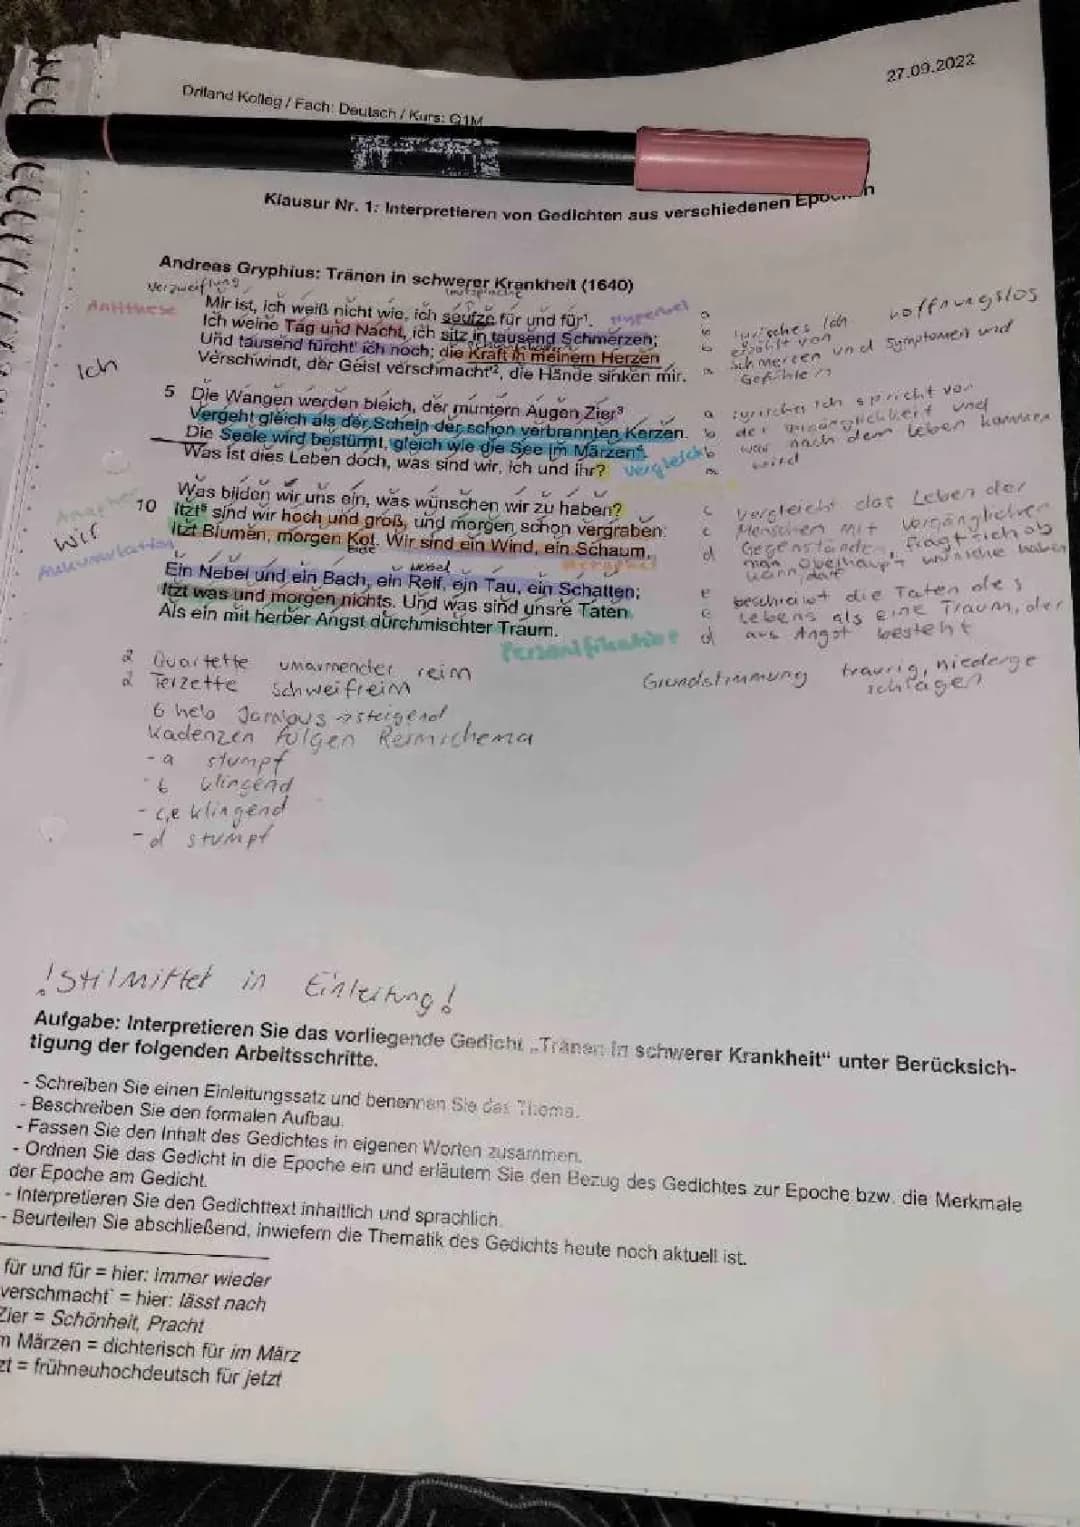 27.09.2022
Driland Kolleg / Fach: Deutsch / Kurs: Q1M
Klausur Nr. 1: Interpretieren von Gedichten aus verschiedenen
Andreas Gryphius: Tränen in schwerer Krankheit (1640)
Verzweiflung
Antithese
Mir ist, ich weiß nicht wie, ich seufze für und für¹. Hyperbel a
Ich weine Tag und Nacht, ich sitz in tausend Schmerzen; b
Und tausend fürcht' ich noch; die Kraft in meinem Herzen b
Verschwindt, der Geist verschmacht'², die Hände sinken mir. a
Ich
hoffnungslos
lyrisches Ich
erzählt von
Schmerzen und Symptomen und
Gefühlen
5 Die Wangen werden bleich, der muntern Augen Zier³ a
Vergeht gleich als der Schein der schon verbrannten Kerzen. b
Die Seele wird bestürmt, gleich wie die See im Märzen⁴. b
Was ist dies Leben doch, was sind wir, ich und ihr? Vergleich
lyrisches Ich spricht von
der Vergänglichkeit und
was nach dem Leben kommen
wird
Anapher
Wir
Akkumulation
Was bilden wir uns ein, was wünschen wir zu haben? c
10 Itzt⁵ sind wir hoch und groß, und morgen schon vergraben: c
Itzt Blumen, morgen Kot. Wir sind ein Wind, ein Schaum, d
Vergleicht das Leben der
Menschen mit vergänglichen
Gegenständen, fragt sich ob
man überhaupt wünsche haben
kann/darf
Ein Nebel und ein Bach, ein Reif, ein Tau, ein Schatten; e
Itzt was und morgen nichts. Und was sind unsre Taten e
Als ein mit herber Angst durchmischter Traum. d
Personifikation
beschreibt die Taten des
Lebens als eine Traum, der
aus Angst besteht
2 Quartette umarmender reim
2 Terzette Schweifreim
6 heb Jambus → steigend
Kadenzen folgen Reimschema
- a stumpf
- b klingend
- c,e klingend
- d stumpf
Grundstimmung traurig, niederge
schlagen
! Stilmittel in Einleitung!
Aufgabe: Interpretieren Sie das vorliegende Gedicht „Tränen in schwerer Krankheit“ unter Berücksich-
tigung der folgenden Arbeitsschritte.
- Schreiben Sie einen Einleitungssatz und benennen Sie das Thema.
- Beschreiben Sie den formalen Aufbau.
- Fassen Sie den Inhalt des Gedichtes in eigenen Worten zusammen.
- Ordnen Sie das Gedicht in die Epoche ein und erläutern Sie den Bezug des Gedichtes zur Epoche bzw. die Merkmale
der Epoche am Gedicht.
- Interpretieren Sie den Gedichttext inhaltlich und sprachlich.
- Beurteilen Sie abschließend, inwiefern die Thematik des Gedichts heute noch aktuell ist.
für und für = hier: immer wieder
verschmacht' = hier: lässt nach
Zier = Schönheit, Pracht
m Märzen = dichterisch für im März
zt = frühneuhochdeutsch für jetzt